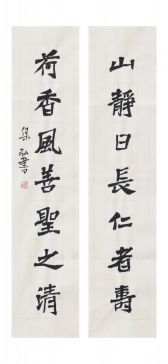 山靜日長仁者壽
荷香風善聖之清
集